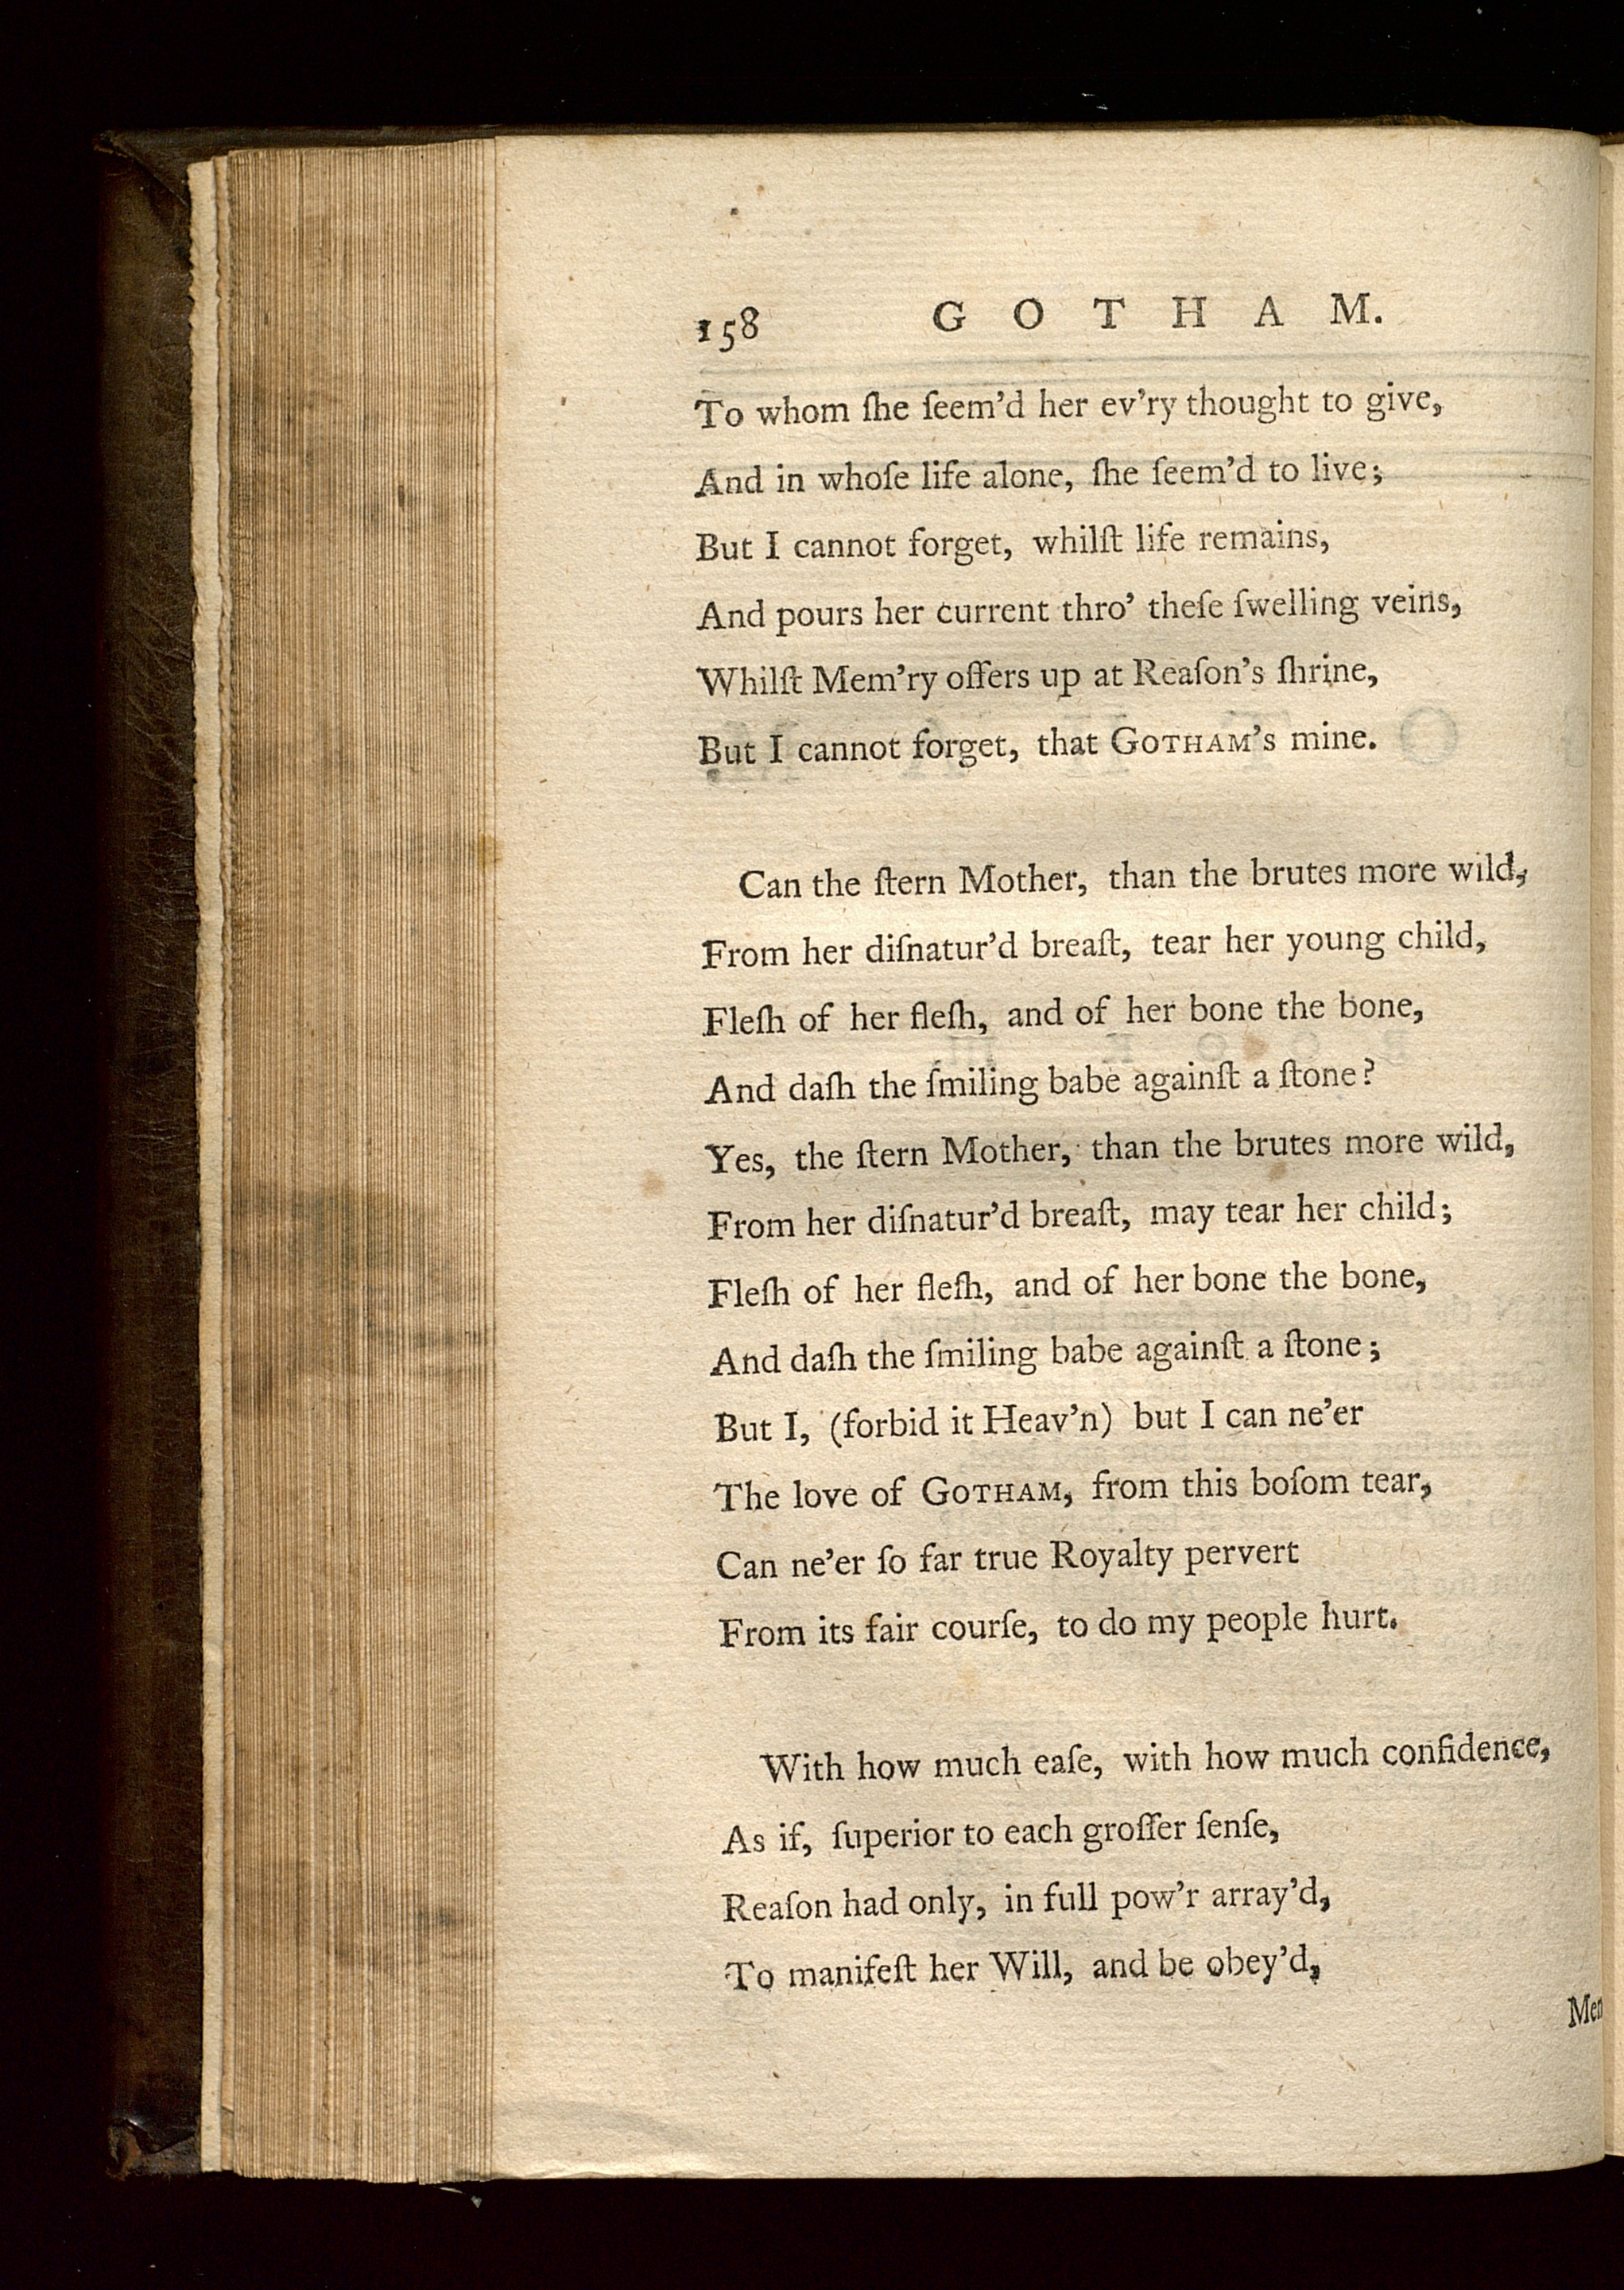 158 GOTHAM.
To whom ſhe ſeem'd her ev'ry thought to give,
And in whoſe life alone, ſhe ſeem'd to live;
But I cannot forget, whilſt life remains,
And pours her current thro' theſe ſwelling veins,
Whilſt Mem'ry offers up at Reaſon's ſhrine,
But I cannot forget, that GOTHAM's mine.
Can the ſtern Mother, than the brutes more wild,
From her diſnatur'd breaſt, tear her young child,
Fleſh of her fleſh, and of her bone the bone,
And daſh the ſmiling babe againſt a ſtone?
Yes, the ſtern Mother, than the brutes more wild,
From her diſnatur'd breaſt, may tear her child;
Fleſh of her fleſh, and of her bone the bone,
And daſh the ſmiling babe againſt a ſtone;
But I, (forbid it Heav'n) but I can ne'er
The love of GOTHAM, from this boſom tear,
Can ne'er ſo far true Royalty pervert
From its fair courſe, to do my people hurt.
With how much eaſe, with how much confidence,
As if, ſuperior to each groſſer ſenſe,
Reaſon had only, in full pow'r array'd,
To manifeſt her Will, and be obey'd,